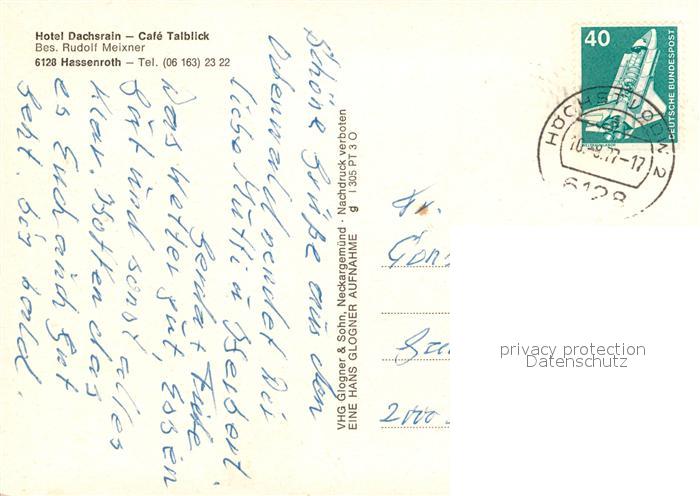 Hotel Dachsrain – Café Talblick
Bes. Rudolf Meixner
6128 Hassenroth – Tel. (06 163) 23 22
Schöne Grüße aus dem
Odenwald sendet Dir
liebe Mutti u. Herbert
Gerda +
Das Wetter gut, Essen
Gut und sonst alles
Klar. Hoffen das
es Euch auch gut
geht. bis bald.
VHG Glogner & Sohn, Neckargemünd · Nachdruck verboten
EINE HANS GLOGNER AUFNAHME g I 305 PT 3 O
40
DEUTSCHE BUNDESPOST
HÖCHST, ODW. 2
10.-8.77-17
6128
Fr.
privacy protection
Datenschutz